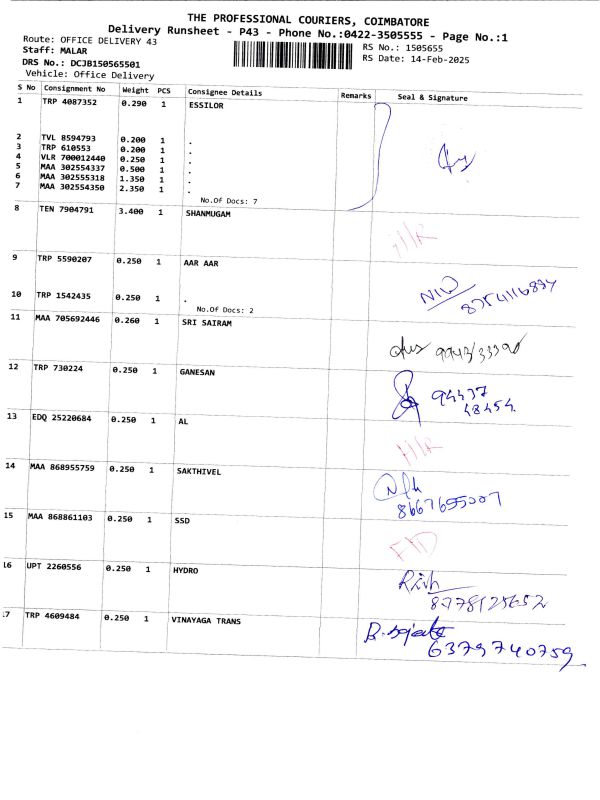 THE PROFESSIONAL COURIERS, COIMBATORE
Delivery Runsheet - P43 - Phone No.:0422-3505555 - Page No.:1
Route: OFFICE DELIVERY 43
RS No.: 1505655
Staff: MALAR
RS Date: 14-Feb-2025
DRS No.: DCJB150565501
Vehicle: Office Delivery
S No Consignment No Weight PCS Consignee Details Remarks Seal & Signature
1 TRP 4087352 0.290 1 ESSILOR
2 TVL 8594793 0.200 1 .
3 TRP 610553 0.200 1 .
4 VLR 700012440 0.250 1 .
5 MAA 302554337 0.500 1 .
6 MAA 302555318 1.350 1 .
7 MAA 302554350 2.350 1 .
No.Of Docs: 7
8 TEN 7904791 3.400 1 SHANMUGAM
9 TRP 5590207 0.250 1 AAR AAR
10 TRP 1542435 0.250 1 .
No.Of Docs: 2
11 MAA 705692446 0.260 1 SRI SAIRAM
12 TRP 730224 0.250 1 GANESAN
94437
48454
13 EDQ 25220684 0.250 1 AL
14 MAA 868955759 0.250 1 SAKTHIVEL
8667655007
15 MAA 868861103 0.250 1 SSD
16 UPT 2260556 0.250 1 HYDRO
8778125652
17 TRP 4609484 0.250 1 VINAYAGA TRANS
6379740759